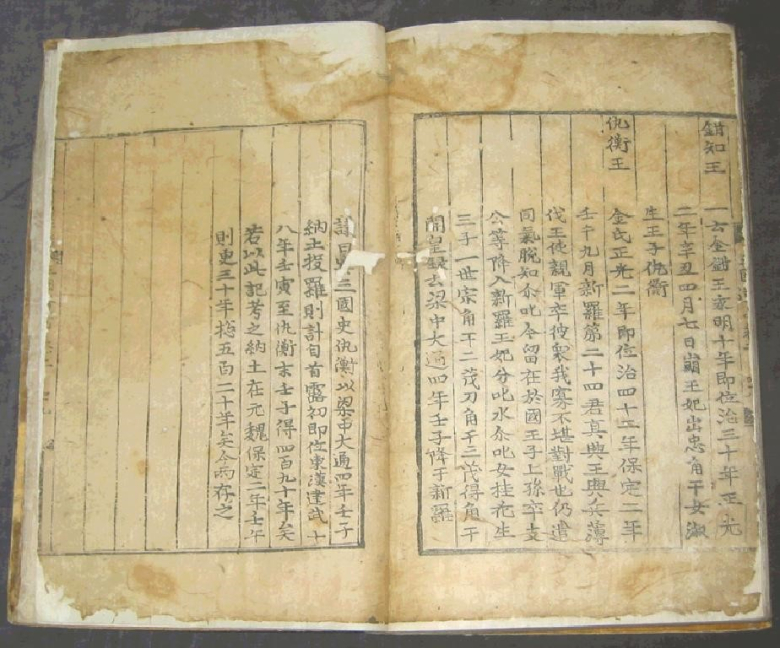 鉗知王 一云金鉗王永明十年即位治三十年正光
二年辛丑四月七日崩王妃出忠角干女淑
生王子仇衡
仇衡王 金氏正光二年即位治四十二年保定二年
壬午九月新羅第二十四君真興王興兵薄
伐王使親軍卒彼衆我寡不堪對戰也仍遣
同氣脫知尒叱今留在於國王子上孫卒支
公等降入新羅王妃分叱水尒叱女桂花生
三子一世宗角干二茂刀角干三茂得角干
開皇錄云梁中大通四年壬子降于新羅
議曰三國史仇衡以梁中大通四年壬子
納土投羅則計自首露初即位東漢建武十
八年壬寅至仇衡末壬子得四百九十年矣
若以此記考之納土在元魏保定二年壬午
則更三十年捴五百二十年矣今兩存之